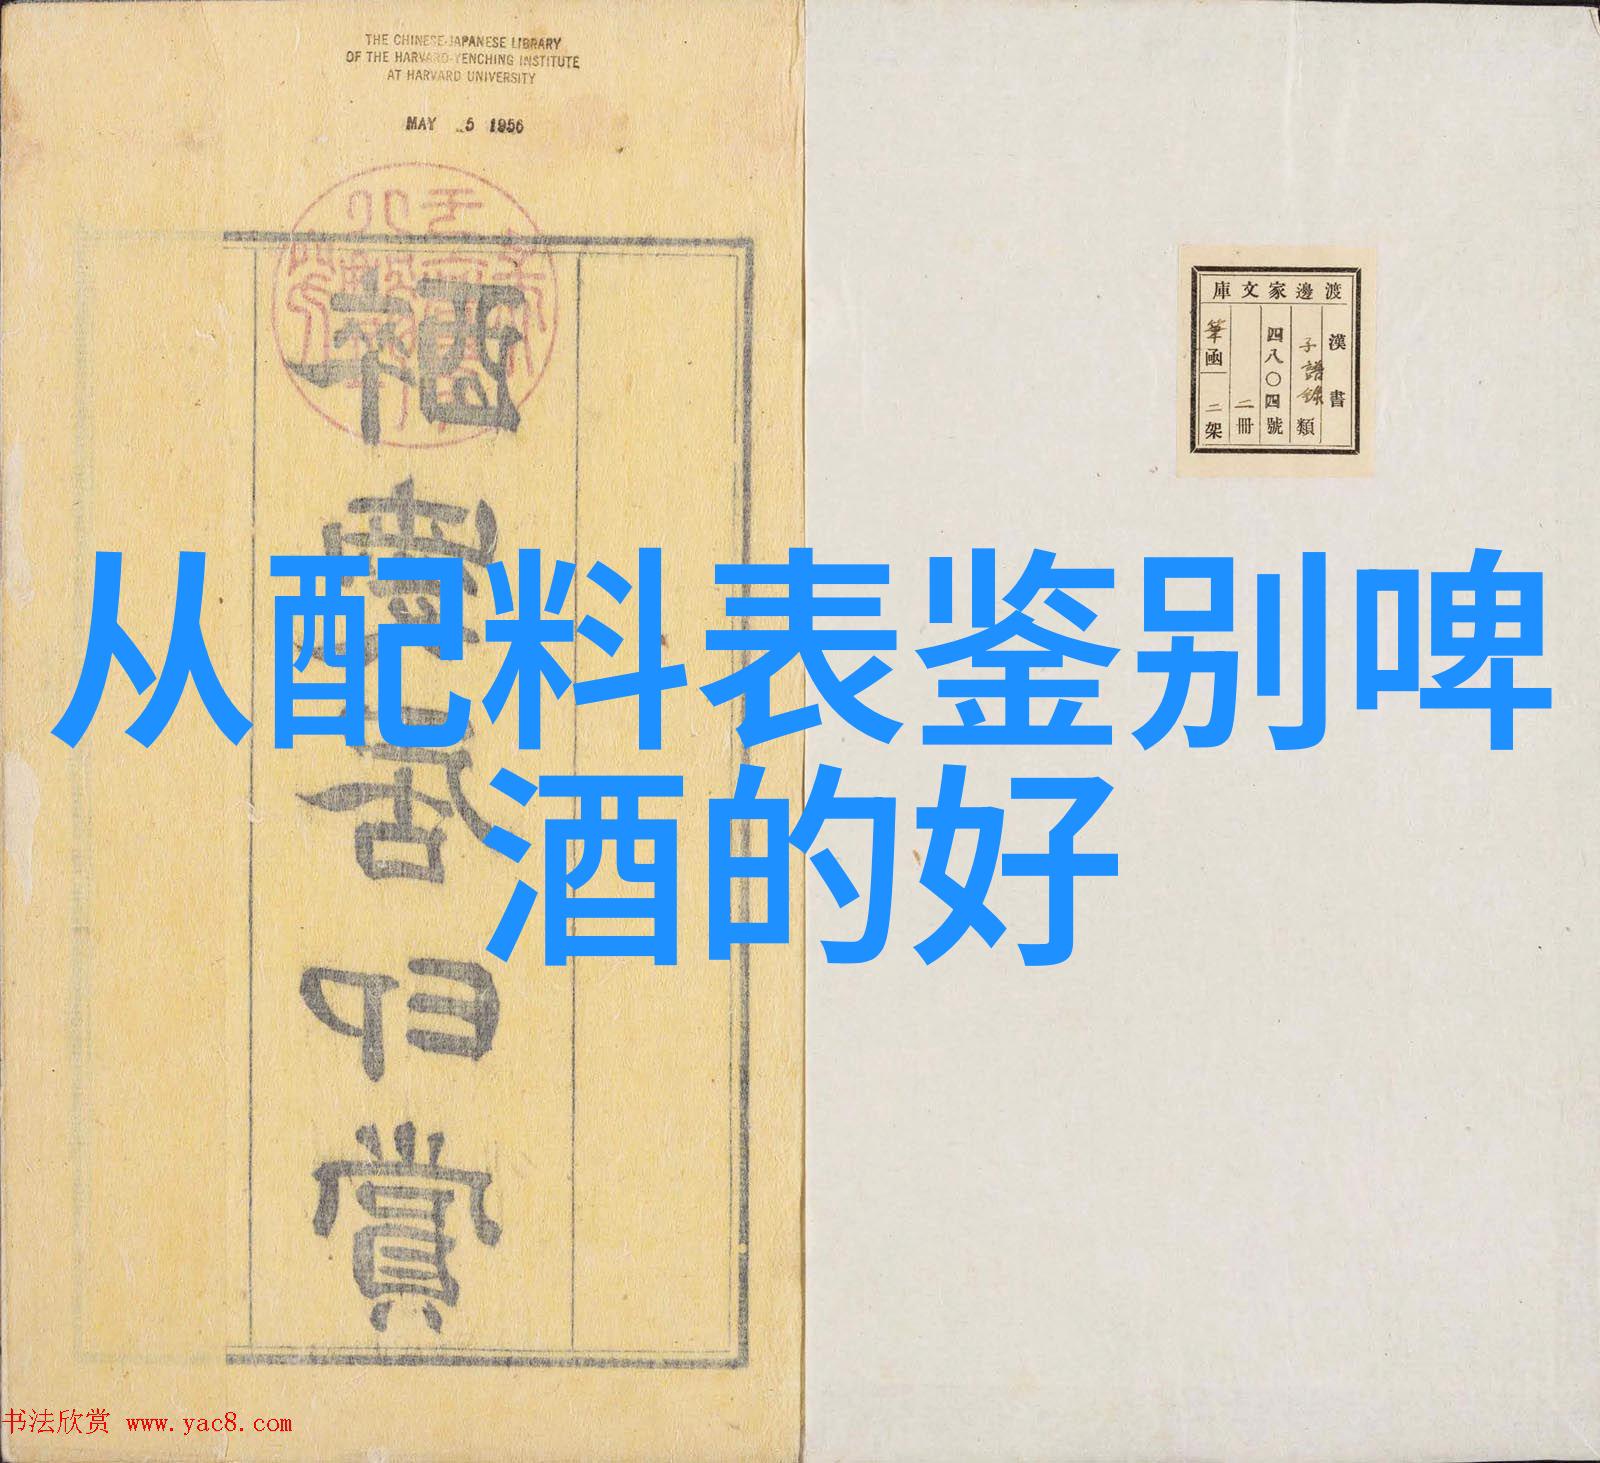 THE CHINESE-JAPANESE LIBRARY
OF THE HARVARD-YENCHING INSTITUTE
AT HARVARD UNIVERSITY
MAY 25 1956
渡邊家文庫
漢書
子譜錄類
四八〇四號
二冊
筆函二架
从配料表鉴别啤
酒的好
印賞
书法欣赏 www.yac8.com